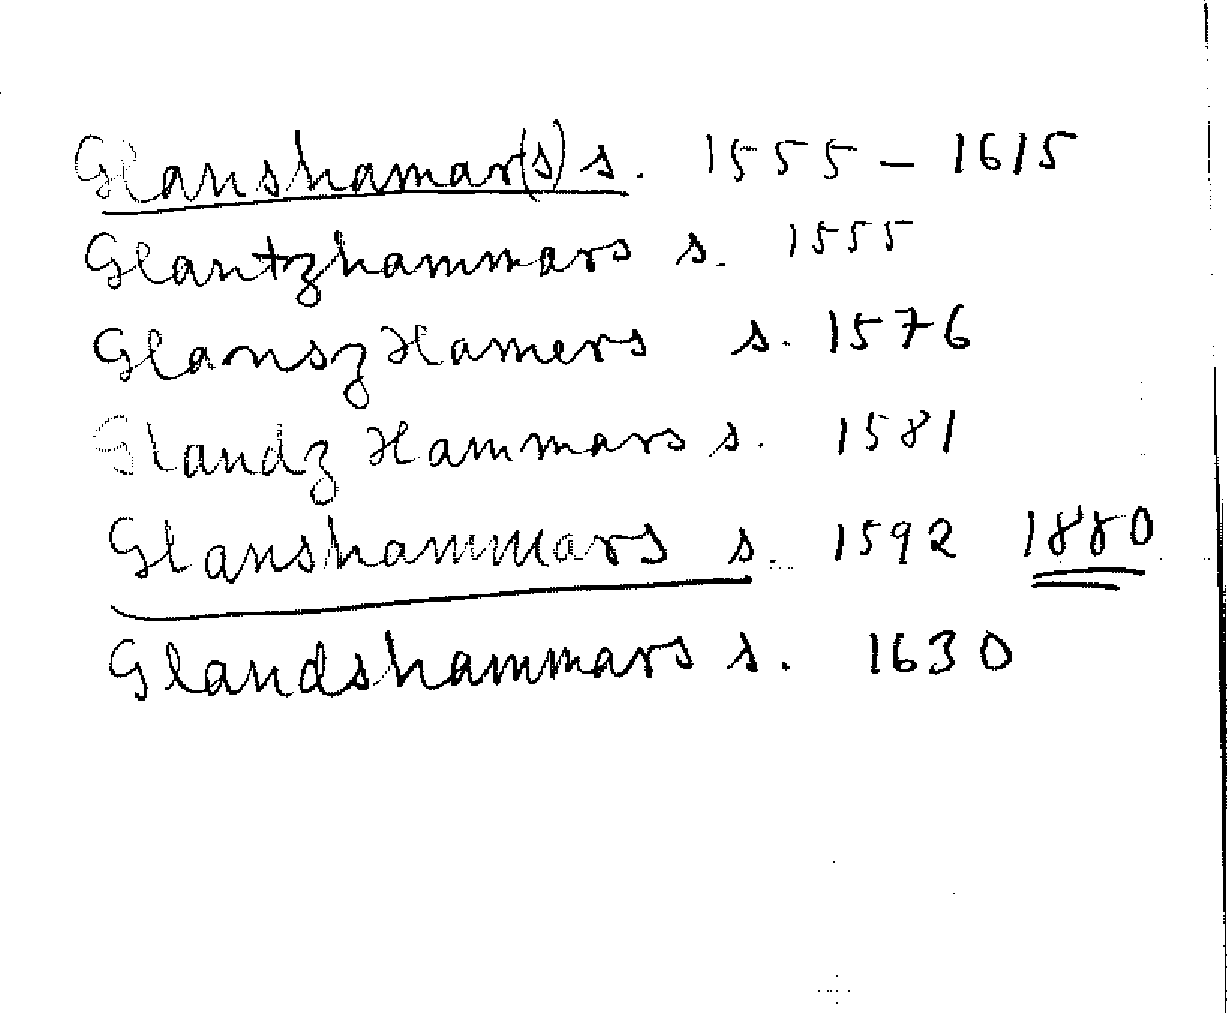 Glanshamar(s) s. 1555 – 1615
Glantzhammars s. 1555
Glansz Hamers s. 1576
Glandz Hammars s. 1581
Glanshammars s. 1592 1880
Glandshammars s. 1630